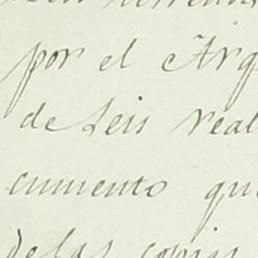 por el Arq
de Seis real
cumento qu
de las copias